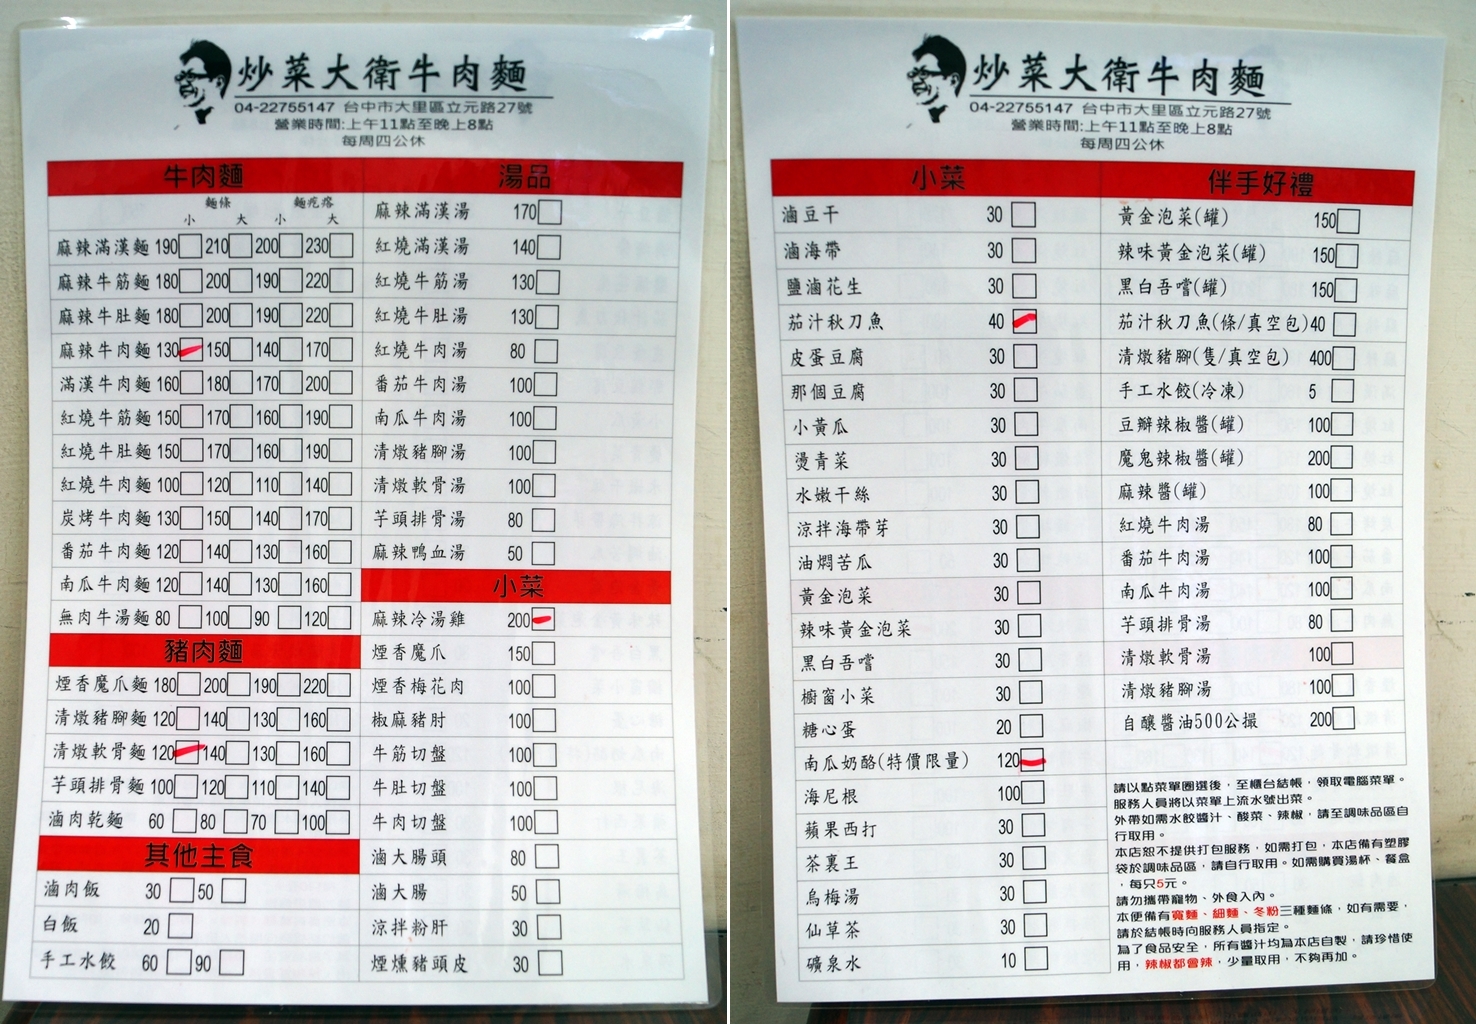 炒菜大衛牛肉麵
04-22755147 台中市大里區立元路27號
營業時間:上午11點至晚上8點
每周四公休
牛肉麵
麵條 麵疙瘩
小 大 小 大
麻辣滿漢麵 190 210 200 230
麻辣牛筋麵 180 200 190 220
麻辣牛肚麵 180 200 190 220
麻辣牛肉麵 130 150 140 170
滿漢牛肉麵 160 180 170 200
紅燒牛筋麵 150 170 160 190
紅燒牛肚麵 150 170 160 190
紅燒牛肉麵 100 120 110 140
炭烤牛肉麵 130 150 140 170
番茄牛肉麵 120 140 130 160
南瓜牛肉麵 120 140 130 160
無肉牛湯麵 80 100 90 120
豬肉麵
煙香魔爪麵 180 200 190 220
清燉豬腳麵 120 140 130 160
清燉軟骨麵 120 140 130 160
芋頭排骨麵 100 120 110 140
滷肉乾麵 60 80 70 100
其他主食
滷肉飯 30 50
白飯 20
手工水餃 60 90
湯品
麻辣滿漢湯 170
紅燒滿漢湯 140
紅燒牛筋湯 130
紅燒牛肚湯 130
紅燒牛肉湯 80
番茄牛肉湯 100
南瓜牛肉湯 100
清燉豬腳湯 100
清燉軟骨湯 100
芋頭排骨湯 80
麻辣鴨血湯 50
小菜
麻辣冷湯雞 200
煙香魔爪 150
煙香梅花肉 100
椒麻豬肘 100
牛筋切盤 100
牛肚切盤 100
牛肉切盤 100
滷大腸頭 80
滷大腸 50
涼拌粉肝 30
煙燻豬頭皮 30
炒菜大衛牛肉麵
04-22755147 台中市大里區立元路27號
營業時間:上午11點至晚上8點
每周四公休
小菜
滷豆干 30
滷海帶 30
鹽滷花生 30
茄汁秋刀魚 40
皮蛋豆腐 30
那個豆腐 30
小黃瓜 30
燙青菜 30
水嫩干絲 30
涼拌海帶芽 30
油燜苦瓜 30
黃金泡菜 30
辣味黃金泡菜 30
黑白吾嚐 30
櫥窗小菜 30
糖心蛋 20
南瓜奶酪(特價限量) 120
海尼根 100
蘋果西打 30
茶裏王 30
烏梅湯 30
仙草茶 30
礦泉水 10
伴手好禮
黃金泡菜(罐) 150
辣味黃金泡菜(罐) 150
黑白吾嚐(罐) 150
茄汁秋刀魚(條/真空包) 40
清燉豬腳(隻/真空包) 400
手工水餃(冷凍) 5
豆瓣辣椒醬(罐) 100
魔鬼辣椒醬(罐) 200
麻辣醬(罐) 100
紅燒牛肉湯 80
番茄牛肉湯 100
南瓜牛肉湯 100
芋頭排骨湯 80
清燉軟骨湯 100
清燉豬腳湯 100
自釀醬油500公撮 200
請以點菜單圈選後，至櫃台結帳，領取電腦菜單。
服務人員將以菜單上流水號出菜。
外帶如需水餃醬汁、酸菜、辣椒，請至調味品區自
行取用。
本店恕不提供打包服務，如需打包，本店備有塑膠
袋於調味品區，請自行取用。如需購買湯杯、餐盒
，每只5元。
請勿攜帶寵物、外食入內。
本便備有寬麵、細麵、冬粉三種麵條，如有需要，
請於結帳時向服務人員指定。
為了食品安全，所有醬汁均為本店自製，請珍惜使
用，辣椒都會辣，少量取用，不夠再加。